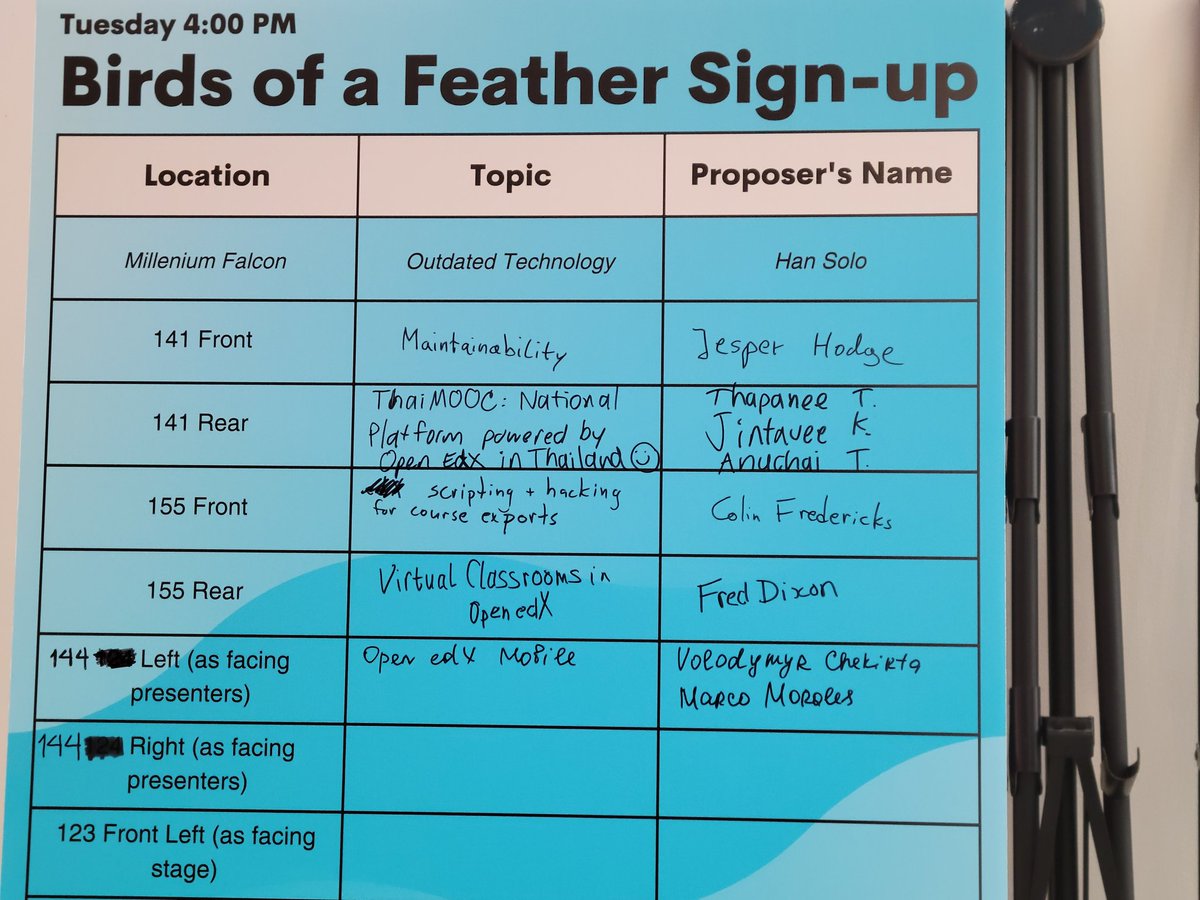 Tuesday 4:00 PM
Birds of a Feather Sign-up
Location Topic Proposer's Name
Millenium Falcon Outdated Technology Han Solo
141 Front Maintainability Jesper Hodge
141 Rear
ThaiMOOC: National
Platform powered by
Open EdX in Thailand
Thapanee T.
Jintavee K.
Anuchai T.
155 Front
scripting + hacking
for course exports
Colin Fredericks
155 Rear
Virtual Classrooms in
Open edX
Fred Dixon
144 Left (as facing
presenters)
Open edX Mobile
Volodymyr Chekirta
Marco Morales
144 Right (as facing
presenters)
123 Front Left (as facing
stage)